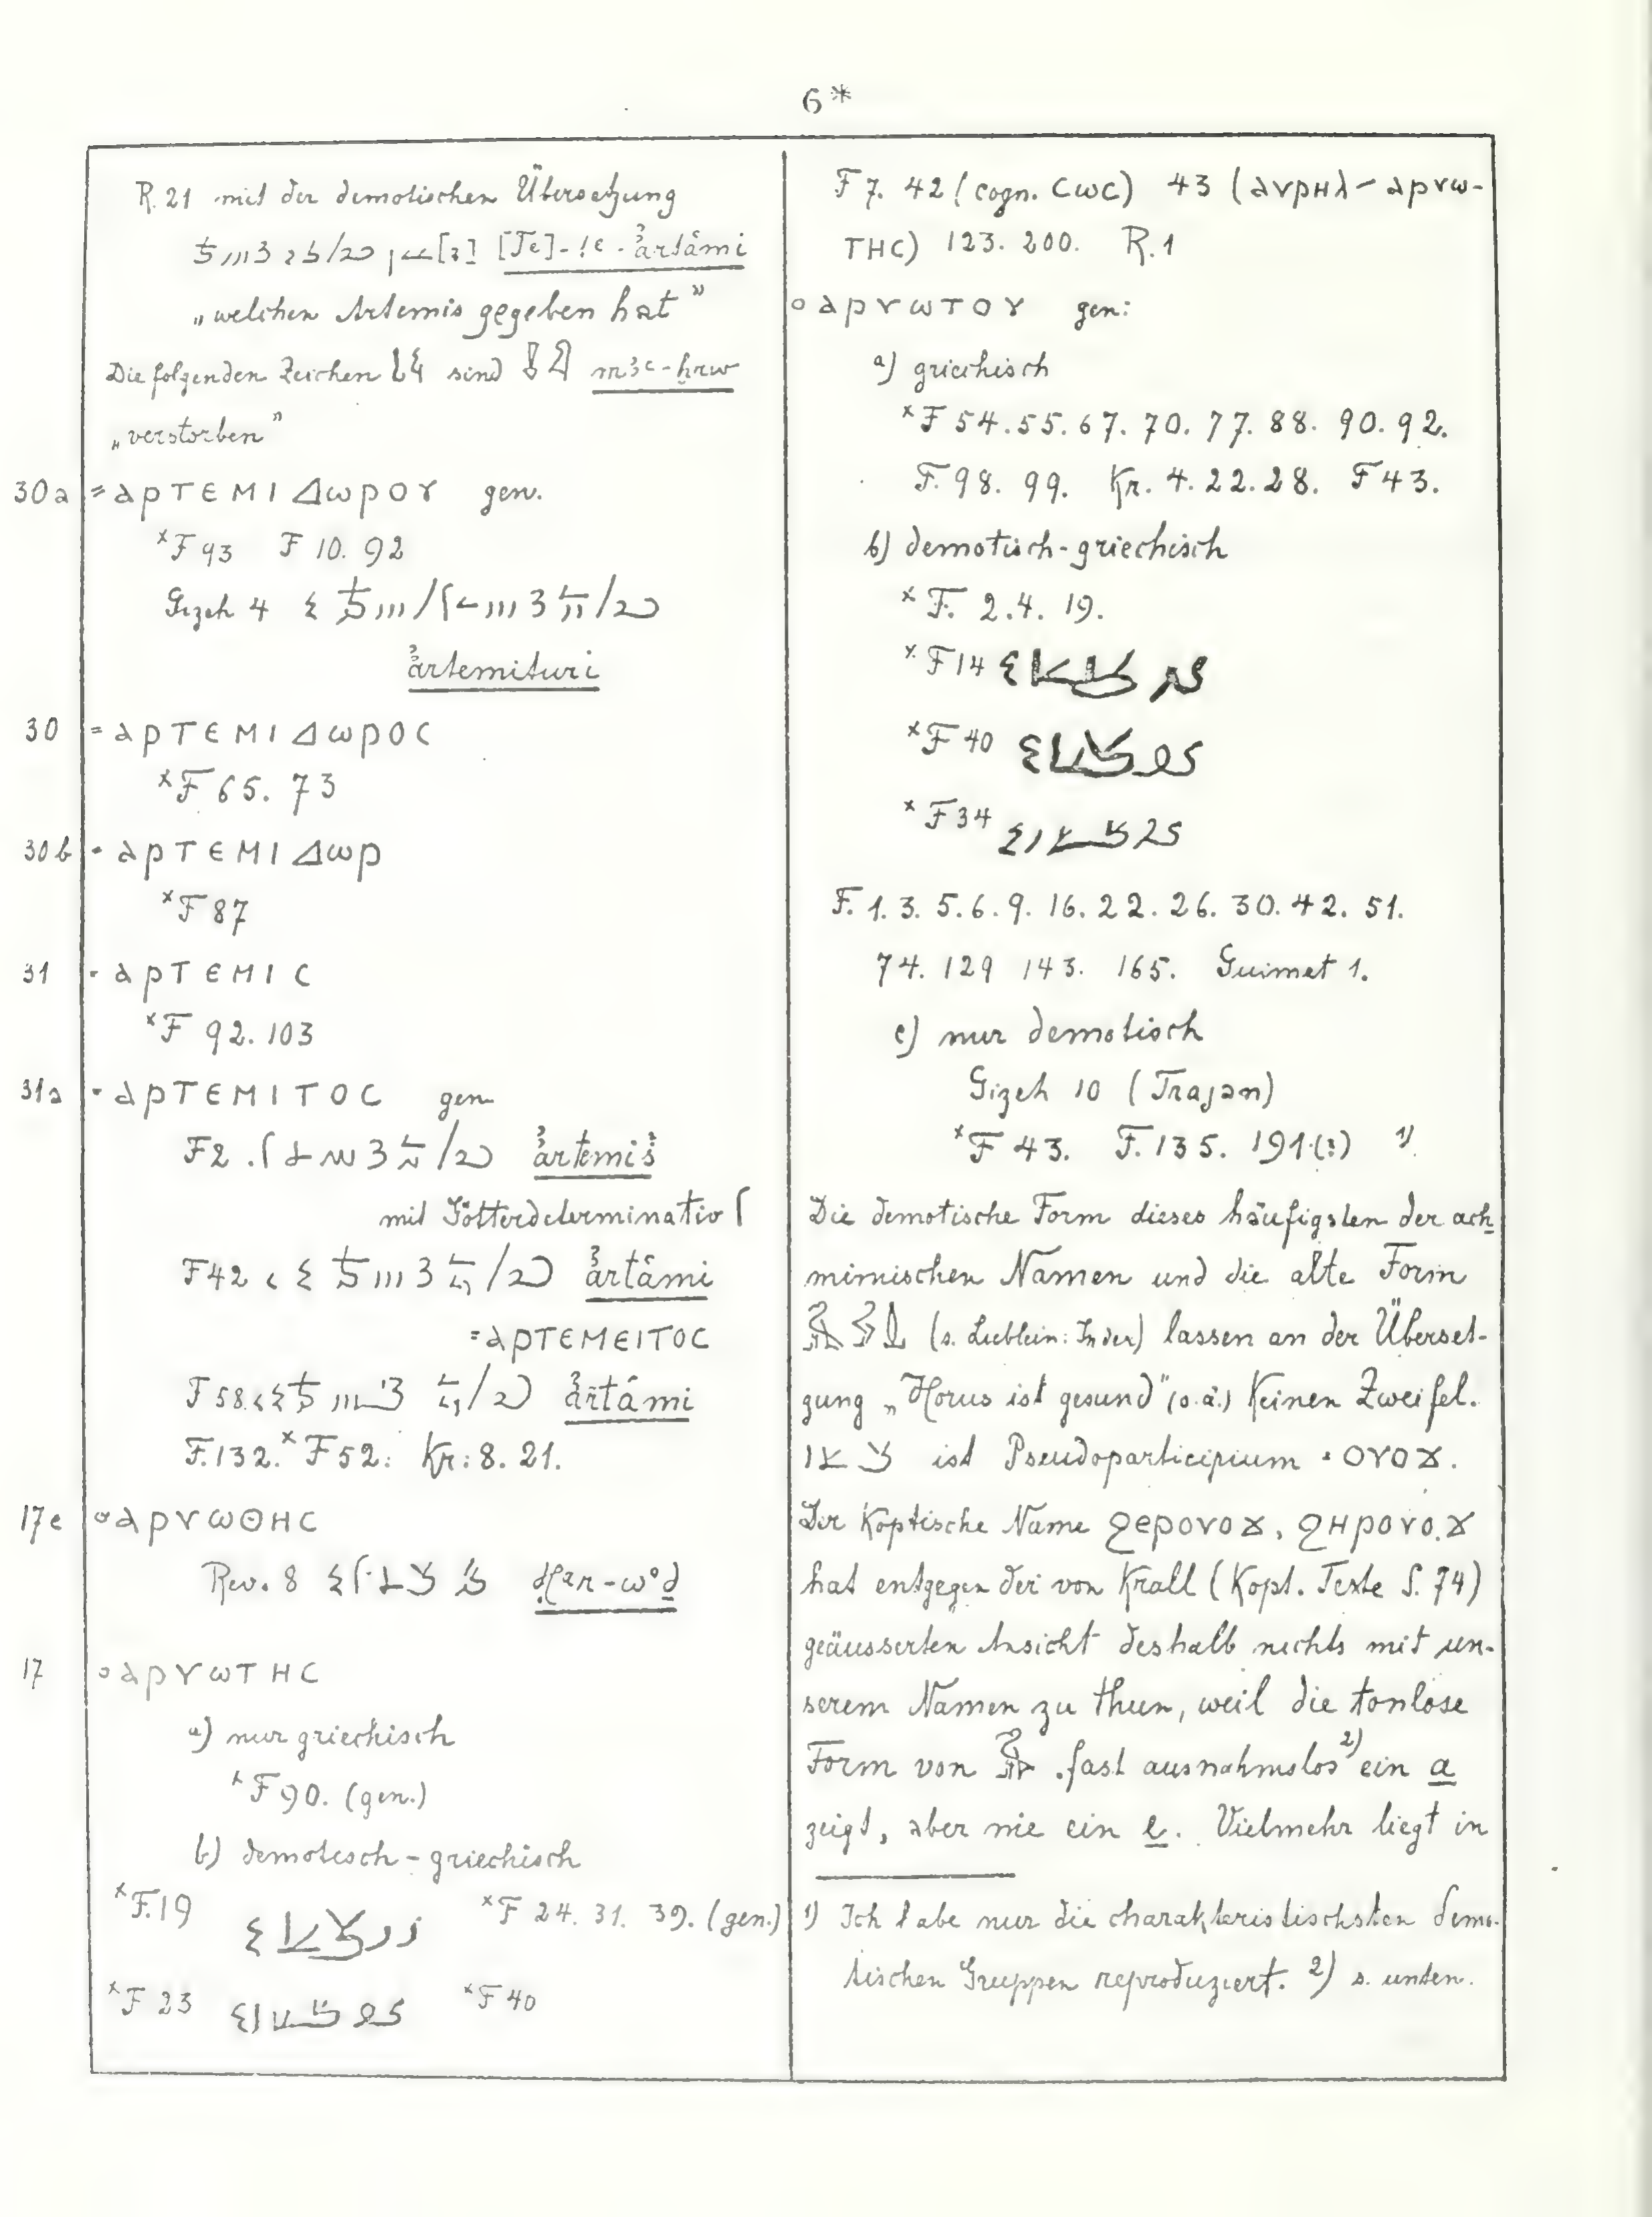 6*
R. 21 mit der demotischen Übersetzung
[Te]-!c-ꜣartâmi
„welchen Artemis gegeben hat”
Die folgenden Zeichen sind m3c-ḫrw
„verstorben”
30a = ΑΡΤΕΜΙΔωΡΟΥ gen.
ˣF 93 F 10. 92
Gizeh 4
ꜣartemituri
30 = ΑΡΤΕΜΙΔωΡΟC
ˣF 65. 73
30b = ΑΡΤΕΜΙΔωΡ
ˣF 87
31 = ΑΡΤΕΜΙC
ˣF 92. 103
31a = ΑΡΤΕΜΙΤΟC gen.
F2 ꜣartemiṡ
mit Götterdeterminativ
F42 ꜣartâmi
= ΑΡΤΕΜΕΙΤΟC
F58 ꜣartâmi
F. 132. ˣF 52. Kr: 8. 21.
17e ○ΑΡΥωΘΗC
Rev. 8 Ḥar-w°ḏ
17 ○ΑΡΥωΤΗC
a) nur griechisch
ˣF 90. (gen.)
b) demotisch-griechisch
ˣF. 19 ˣF 24. 31. 39. (gen.)
ˣF 23 ˣF 40
F 7. 42 (cogn. CωC) 43 (ΑΥΡΗΛ – ΑΡΥω-
ΤΗC) 123. 200. R. 1
○ΑΡΥωΤΟΥ gen:
a) griechisch
ˣF 54. 55. 67. 70. 77. 88. 90. 92.
F. 98. 99. Kr. 4. 22. 28. F 43.
b) demotisch-griechisch
ˣF. 2. 4. 19.
ˣF 14
ˣF 40
ˣF 34
F. 1. 3. 5. 6. 9. 16. 22. 26. 30. 42. 51.
74. 129 143. 165. Guimet 1.
c) nur demotisch
Gizeh 10 (Trajan)
ˣF 43. F. 135. 191 (?) 1)
Die demotische Form dieses häufigsten der ach-
mimischen Namen und die alte Form
(s. Lieblein: Index) lassen an der Überset-
zung „Horus ist gesund” (o. ä.) keinen Zweifel.
ist Pseudoparticipium = ΟΥΟϪ.
Der koptische Name ϨΕΡΟΥΟϪ, ϨΗΡΟΥΟϪ
hat entgegen der von Krall (Kopt. Texte S. 74)
geäusserten Ansicht deshalb nichts mit un-
serem Namen zu thun, weil die tonlose
Form von fast ausnahmslos 2) ein a
zeigt, aber nie ein e. Vielmehr liegt in
1) Ich habe nur die charakteristischsten demo-
tischen Gruppen reproduziert. 2) s. unten.